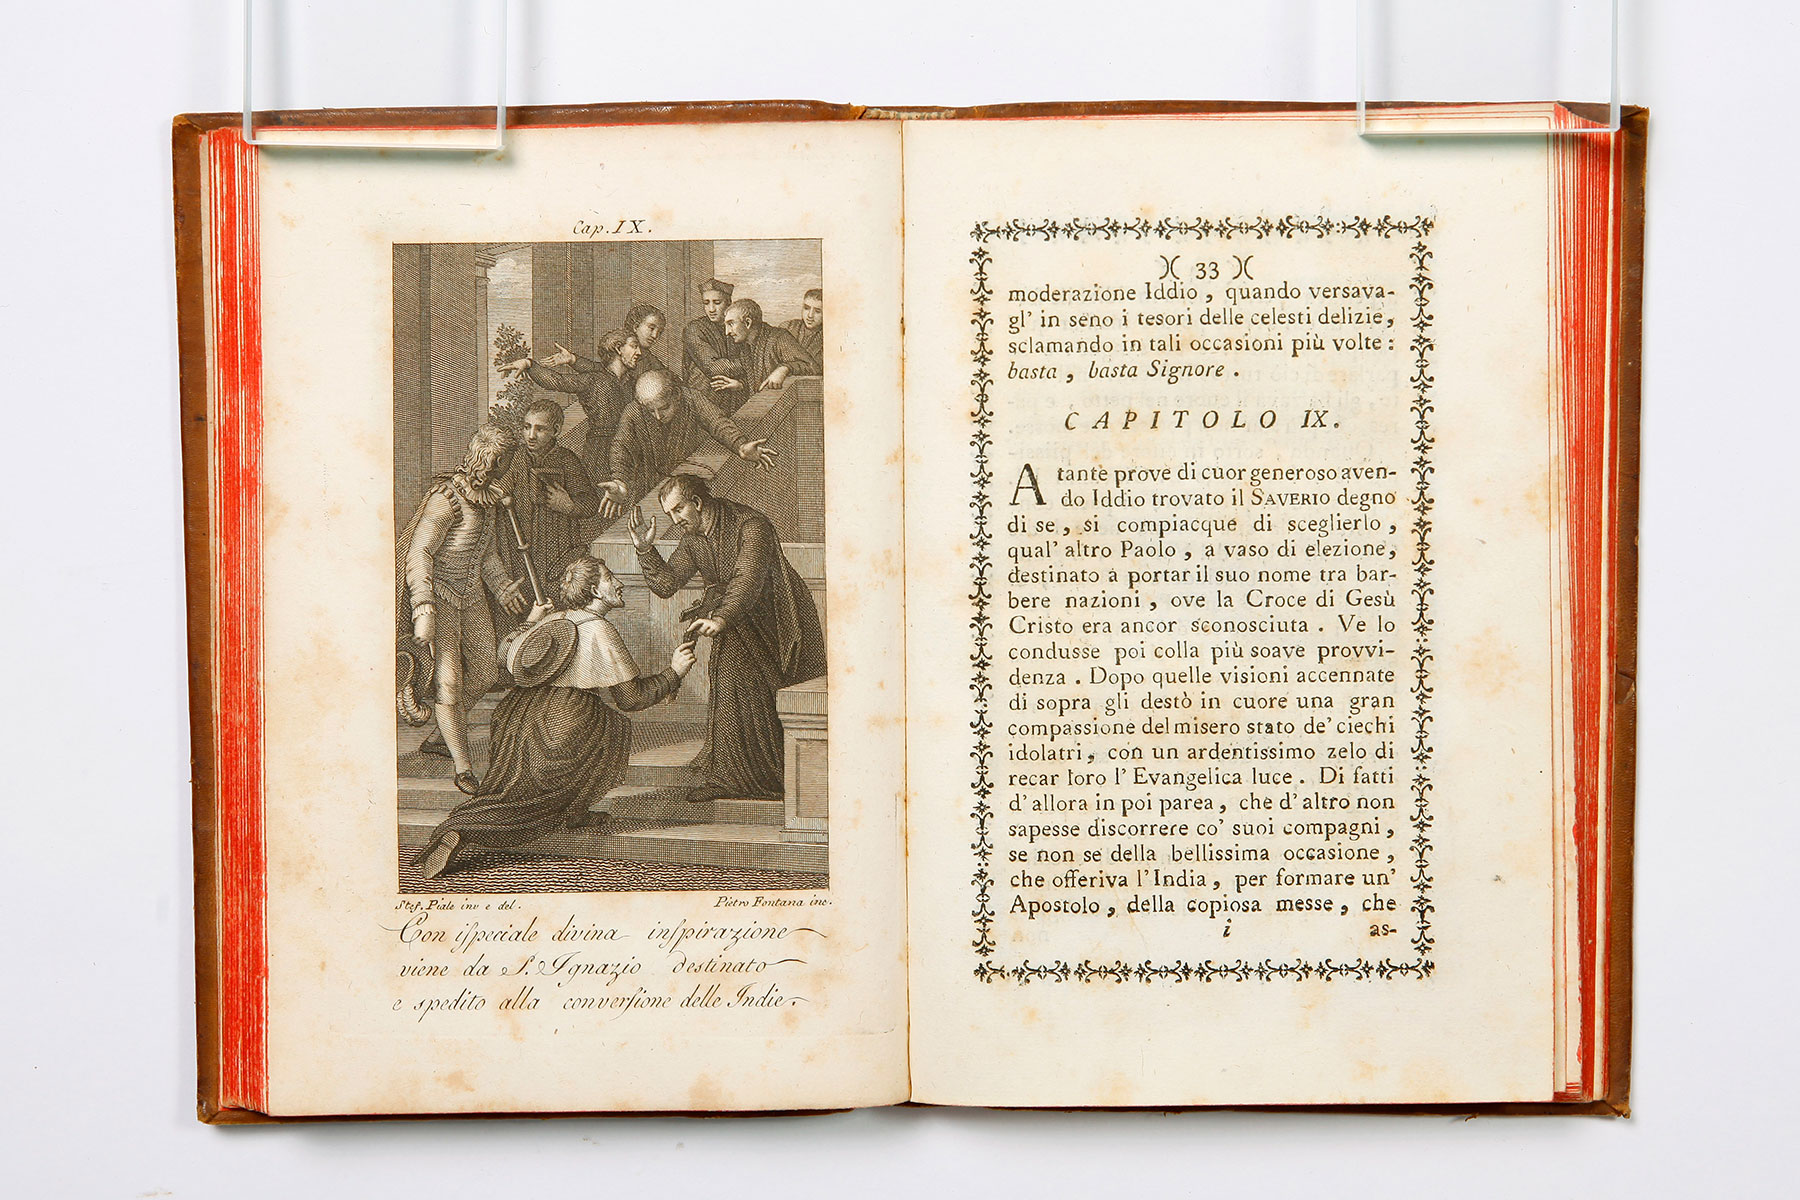 Cap. IX.
Stef. Piale inv e del.
Pietro Fontana inc.
Con ispeciale divina inspirazione
viene da S. Ignazio destinato
e spedito alla conversione delle Indie.
)( 33 )(
moderazione Iddio, quando versava-
gl' in seno i tesori delle celesti delizie,
sclamando in tali occasioni più volte:
basta, basta Signore.
CAPITOLO IX.
A tante prove di cuor generoso aven-
do Iddio trovato il SAVERIO degno
di se, si compiacque di sceglierlo,
qual' altro Paolo, a vaso di elezione,
destinato a portar il suo nome tra bar-
bere nazioni, ove la Croce di Gesù
Cristo era ancor sconosciuta. Ve lo
condusse poi colla più soave provvi-
denza. Dopo quelle visioni accennate
di sopra gli destò in cuore una gran
compassione del misero stato de' ciechi
idolatri, con un ardentissimo zelo di
recar loro l' Evangelica luce. Di fatti
d' allora in poi parea, che d' altro non
sapesse discorrere co' suoi compagni,
se non se della bellissima occasione,
che offeriva l' India, per formare un'
Apostolo, della copiosa messe, che
i as-